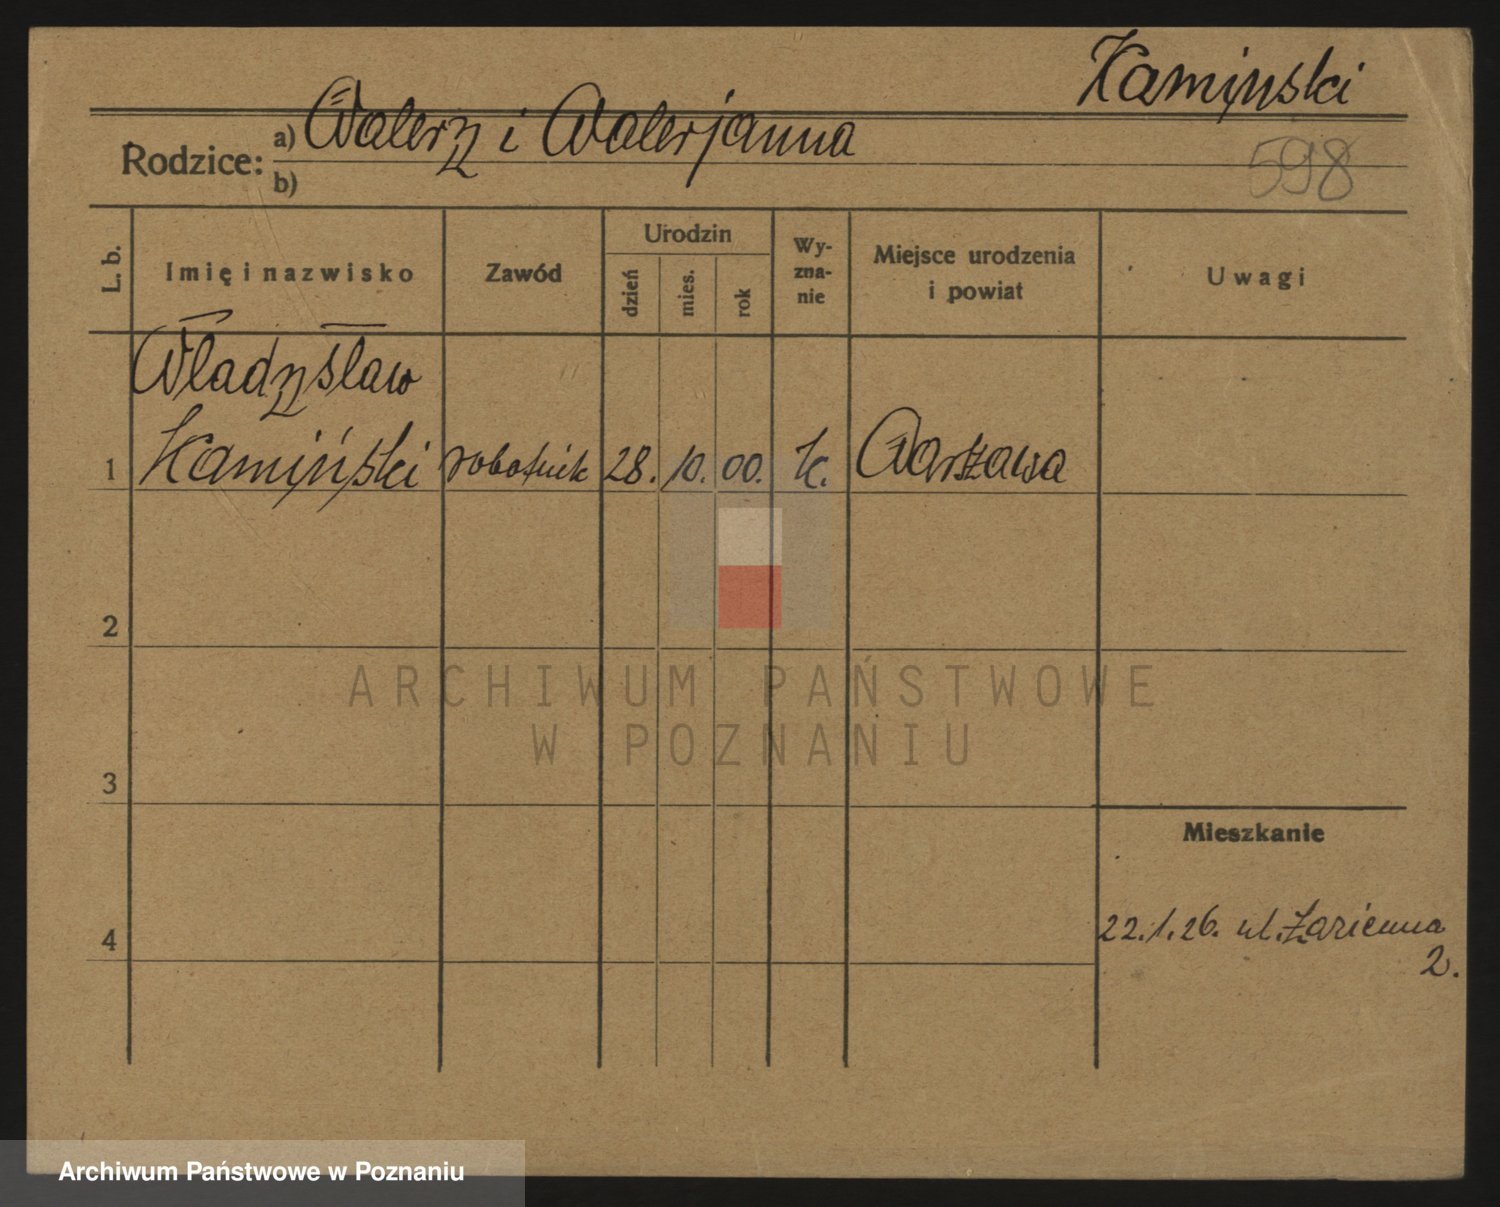 Kamiński
Rodzice: a) Walery i Walerjanna
b)
598
L. b. Imię i nazwisko Zawód Urodzin dzień mies. rok Wy-zna-nie Miejsce urodzenia i powiat Uwagi
Władysław
1 Kamiński robotnik 28. 10. 00. k. Warszawa
2
ARCHIWUM PAŃSTWOWE
W POZNANIU
3
Mieszkanie
22.1.26. ul.
4
2.
Archiwum Państwowe w Poznaniu